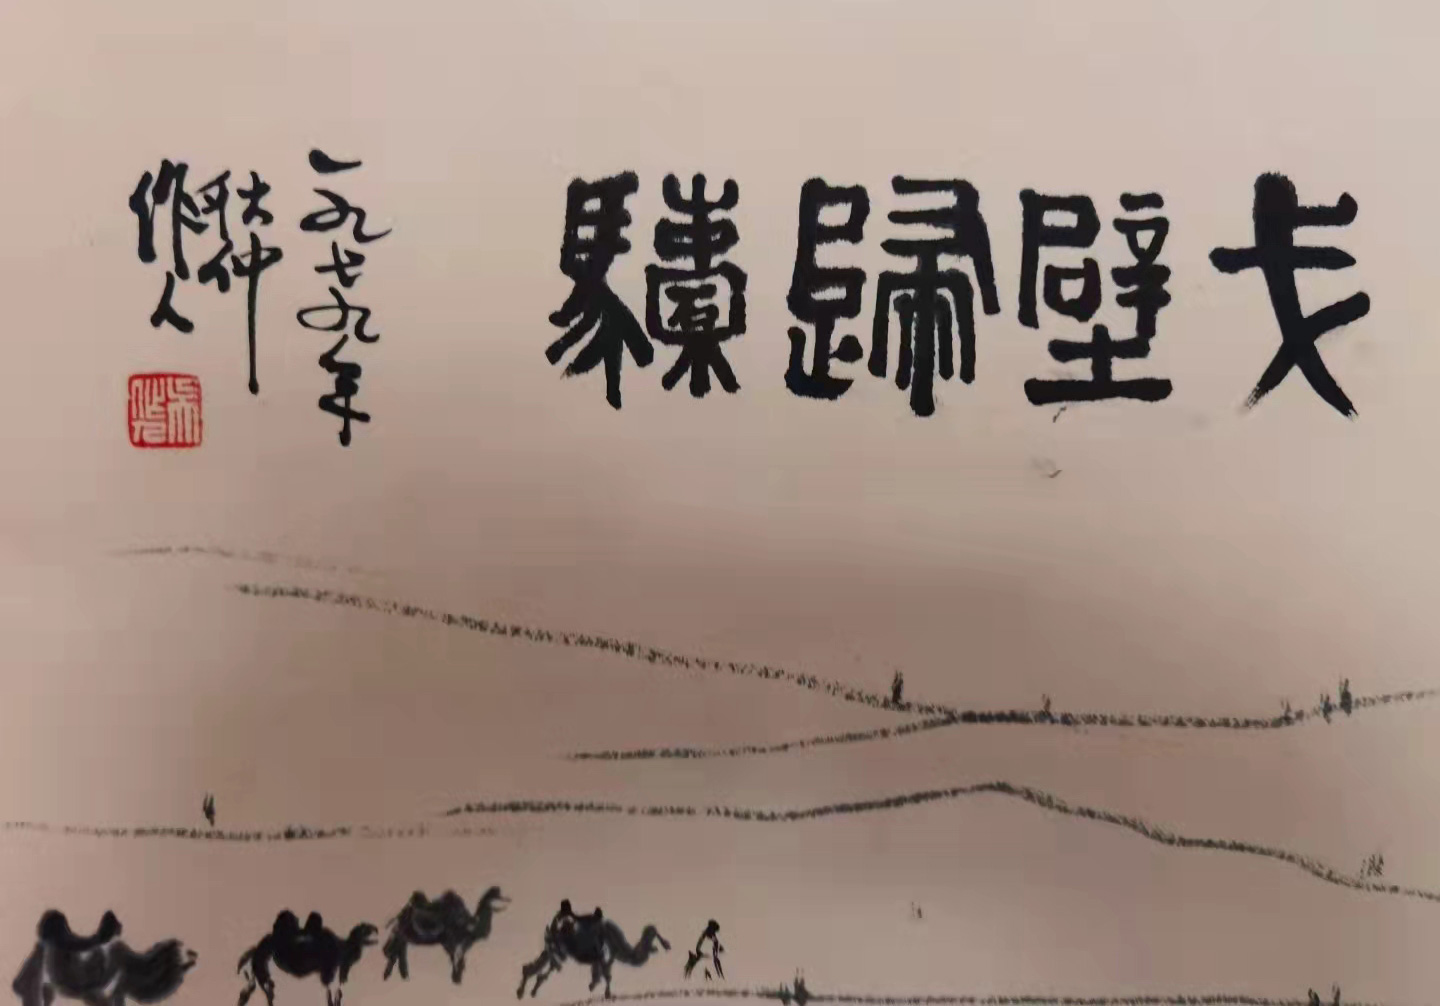 戈壁歸驝
一九七九年
秋仲
作人